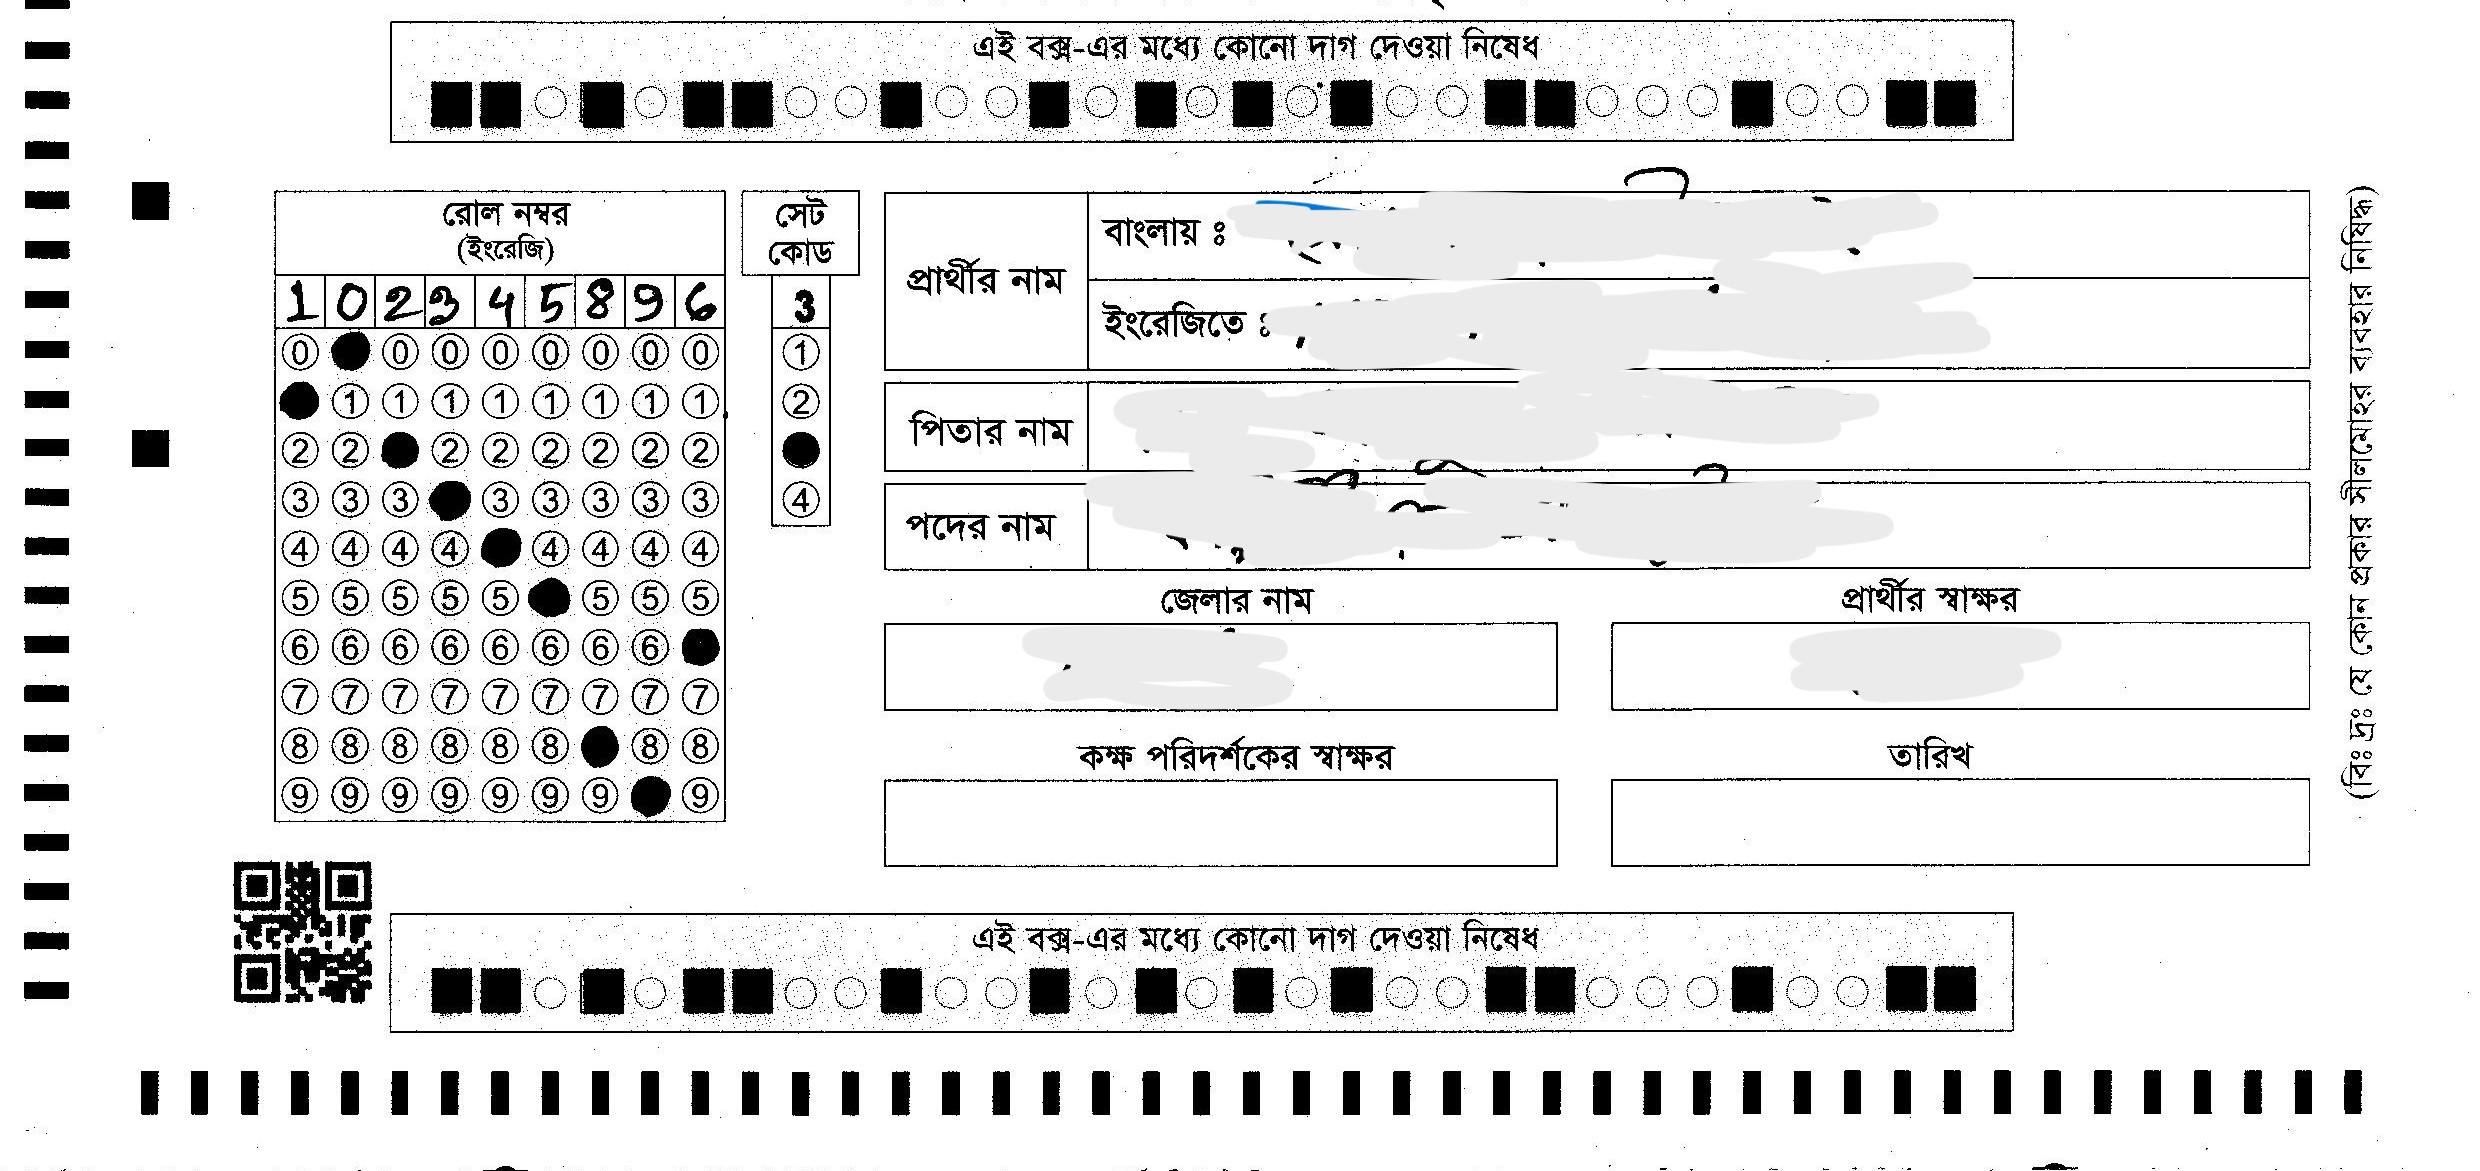 এই বক্স-এর মধ্যে কোনো দাগ দেওয়া নিষেধ
রোল নম্বর
(ইংরেজি)
1 0 2 3 4 5 8 9 6
0 0 0 0 0 0 0 0
1 1 1 1 1 1 1 1
2 2 2 2 2 2 2 2
3 3 3 3 3 3 3 3
4 4 4 4 4 4 4 4
5 5 5 5 5 5 5 5
6 6 6 6 6 6 6 6
7 7 7 7 7 7 7 7 7
8 8 8 8 8 8 8 8
9 9 9 9 9 9 9 9
সেট
কোড
3
1
2
4
প্রার্থীর নাম
বাংলায় ঃ
ইংরেজিতে ঃ
পিতার নাম
পদের নাম
জেলার নাম
প্রার্থীর স্বাক্ষর
কক্ষ পরিদর্শকের স্বাক্ষর
তারিখ
(বিঃ দ্রঃ যে কোন প্রকার সীলমোহর ব্যবহার নিষিদ্ধ)
এই বক্স-এর মধ্যে কোনো দাগ দেওয়া নিষেধ